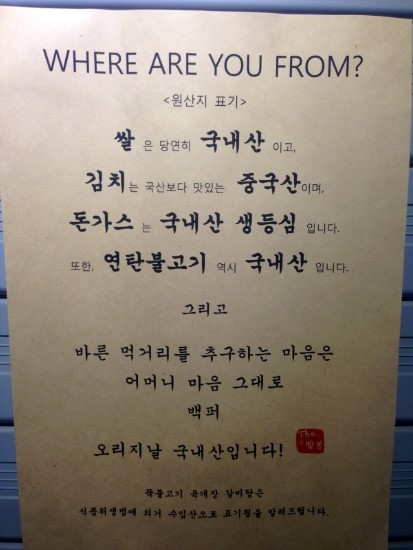 WHERE ARE YOU FROM?
<원산지 표기>
쌀 은 당연히 국내산 이고,
김치는 국산보다 맛있는 중국산이며,
돈가스 는 국내산 생등심 입니다.
또한, 연탄불고기 역시 국내산 입니다.
그리고
바른 먹거리를 추구하는 마음은
어머니 마음 그대로
백퍼
오리지날 국내산입니다!
The
뚝불고기 육개장 갈비탕은
식품위생법에 의거 수입산으로 표기됨을 알려드립니다.